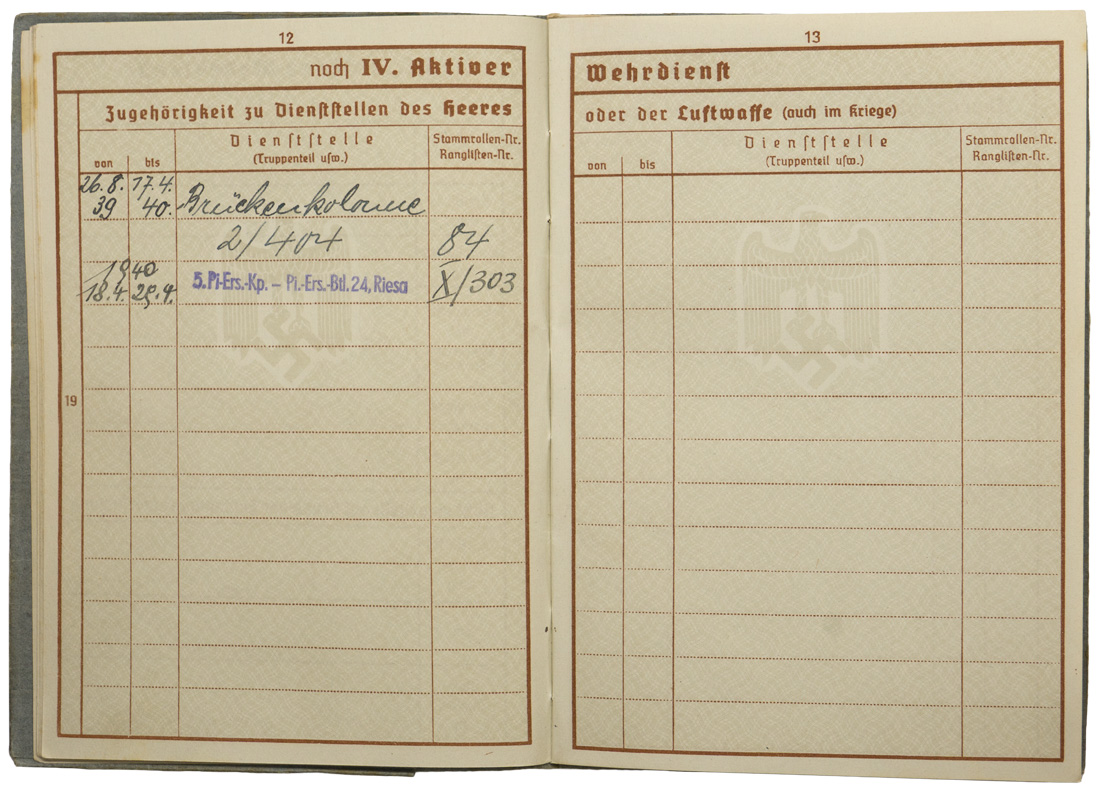 12
noch IV. Aktiver
Zugehörigkeit zu Dienststellen des Heeres
von
bis
Dienststelle
(Truppenteil usw.)
Stammrollen-Nr.
Ranglisten-Nr.
26.8. 17.4.
39 40. Brückenkolonne
2/404 84
1940
18.4. 29.4. 5.Pi-Ers.-Kp. – Pi.-Ers.-Btl. 24, Riesa X/303
19
13
Wehrdienst
oder der Luftwaffe (auch im Kriege)
von
bis
Dienststelle
(Truppenteil usw.)
Stammrollen-Nr.
Ranglisten-Nr.